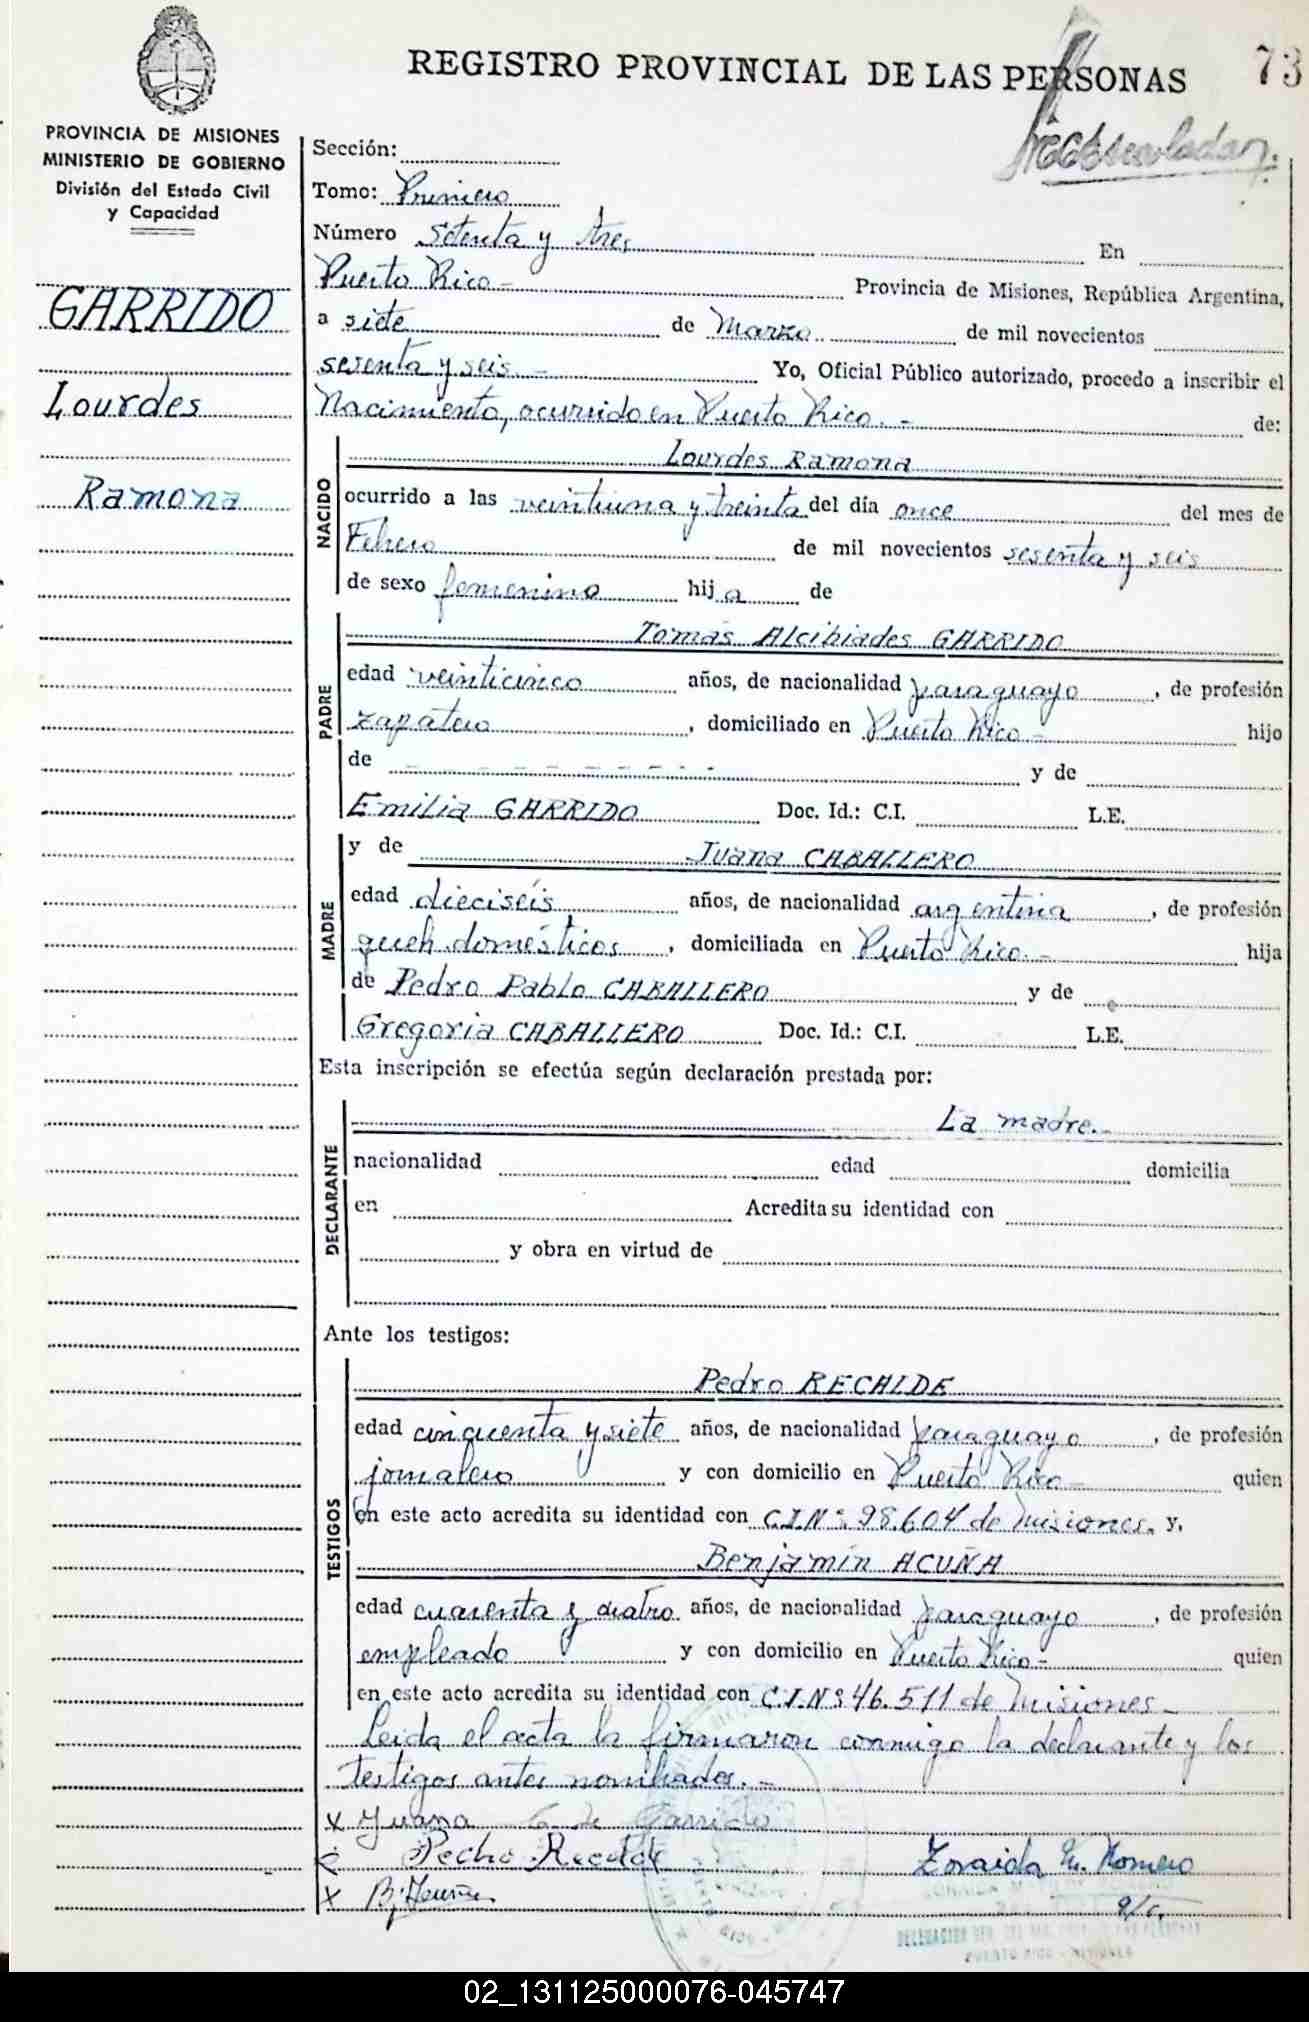 REGISTRO PROVINCIAL DE LAS PERSONAS
73
PROVINCIA DE MISIONES
MINISTERIO DE GOBIERNO
División del Estado Civil
y Capacidad
GARRIDO
Lourdes
Ramona
Sección:
Tomo: Primero
Número Setenta y tres En
Puerto Rico - Provincia de Misiones, República Argentina,
a siete de Marzo de mil novecientos
sesenta y seis - Yo, Oficial Público autorizado, procedo a inscribir el
Nacimiento, ocurrido en Puerto Rico. - de:
NACIDO
Lourdes Ramona
ocurrido a las veintiuna y treinta del día once del mes de
Febrero de mil novecientos sesenta y seis
de sexo femenino hij a de
PADRE
Tomás Alcibiades GARRIDO
edad veinticinco años, de nacionalidad paraguayo, de profesión
zapatero, domiciliado en Puerto Rico - hijo
de - - - - - - - - y de
Emilia GARRIDO Doc. Id.: C.I. L.E.
MADRE
y de Juana CABALLERO
edad dieciséis años, de nacionalidad argentina, de profesión
queh. domésticos, domiciliada en Puerto Rico. - hija
de Pedro Pablo CABALLERO y de
Gregoria CABALLERO Doc. Id.: C.I. L.E.
Esta inscripción se efectúa según declaración prestada por:
DECLARANTE
La madre.
nacionalidad edad domicilia
en Acredita su identidad con
y obra en virtud de
Ante los testigos:
TESTIGOS
Pedro RECALDE
edad cincuenta y siete años, de nacionalidad paraguayo, de profesión
jornalero y con domicilio en Puerto Rico - quien
en este acto acredita su identidad con C.I.Nº 98.604 de Misiones. y,
Benjamín ACUÑA
edad cuarenta y cuatro años, de nacionalidad paraguayo, de profesión
empleado y con domicilio en Puerto Rico - quien
en este acto acredita su identidad con C.I.Nº 46.511 de Misiones -
Leida el acta la firmaron conmigo la declarante y los
testigos antes nombrados. -
x Juana C. de Garrido
Pedro Recalde Zoraida M. Romero
x B. Acuña.
PUERTO RICO - MISIONES
02_131125000076-045747